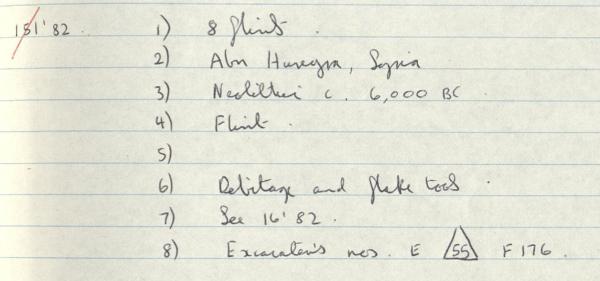 151'82. 1) 8 flints.
2) Abu Hureyra, Syria
3) Neolithic c. 6,000 BC
4) Flint.
5)
6) Debitage and flake tools.
7) See 16'82.
8) Excavator's nos. E 55 F176.